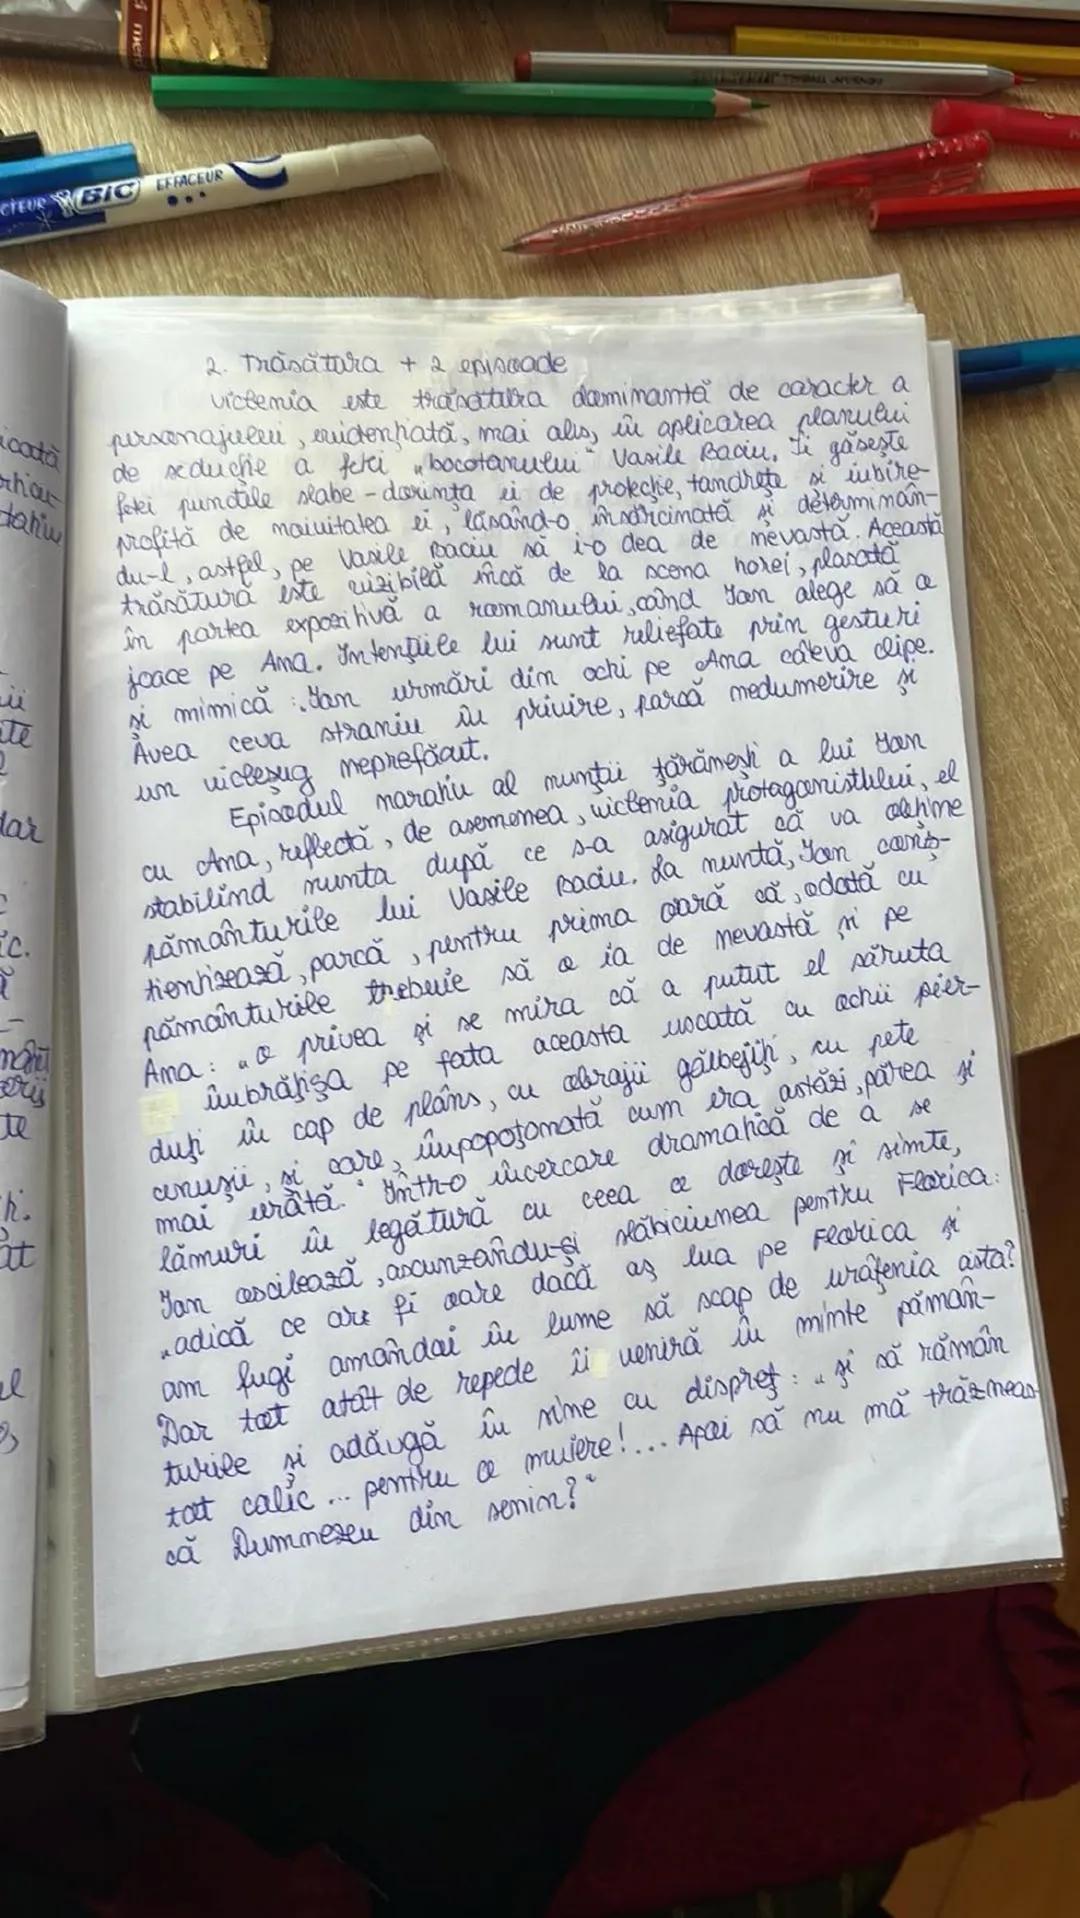 BIC
EFFACEUR
2. Trăsătura + 2 episoade
viclenia este trăsătura dominantă de caracter a
personajului, evidențiată, mai ales, în aplicarea planului
de seducție a fetei „bocotanului" Vasile Baciu. Îi găsește
fetei punctele slabe - dorința ei de protecție, tandrețe și iubire-
profită de naivitatea ei, lăsând-o însărcinată și determinân-
du-l, astfel, pe Vasile Baciu să i-o dea de nevastă. Această
trăsătură este vizibilă încă de la scena horei, plasată
în partea expozitivă a romanului, când Ion alege să o
joace pe Ana. Intențiile lui sunt reliefate prin gesturi
și mimică: „Ion urmări din ochi pe Ana câteva clipe.
Avea ceva straniu în privire, parcă nedumerire și
un vicleșug neprefăcut.
Episodul narativ al nunții țărănești a lui Ion
cu Ana, reflectă, de asemenea, viclenia protagonistului, el
stabilind nunta după ce s-a asigurat că va obține
pământurile lui Vasile Baciu. La nuntă, Ion conș-
tientizează, parcă, pentru prima oară că, odată cu
pământurile trebuie să o ia de nevastă și pe
Ana: „o privea și se mira că a putut el săruta
îmbrățișa pe fata aceasta uscată cu ochii pier-
duți în cap de plâns, cu obrajii gălbejiți, cu pete
cenușii, și care, împopoțonată cum era astăzi, părea și
mai urâtă." Într-o încercare dramatică de a se
lămuri în legătură cu ceea ce dorește și simte,
Ion oscilează, ascunzându-și slăbiciunea pentru Florica:
„adică ce are fi oare dacă aș lua pe Florica și
am fugi amândoi în lume să scap de urâțenia asta?
Dar tot atât de repede îi veniră în minte pămân-
turile și adăugă în sine cu dispreț: „și să rămân
tot calic ... pentru o muiere!... Apoi să nu mă trăzneas-
că Dumnezeu din senin?"